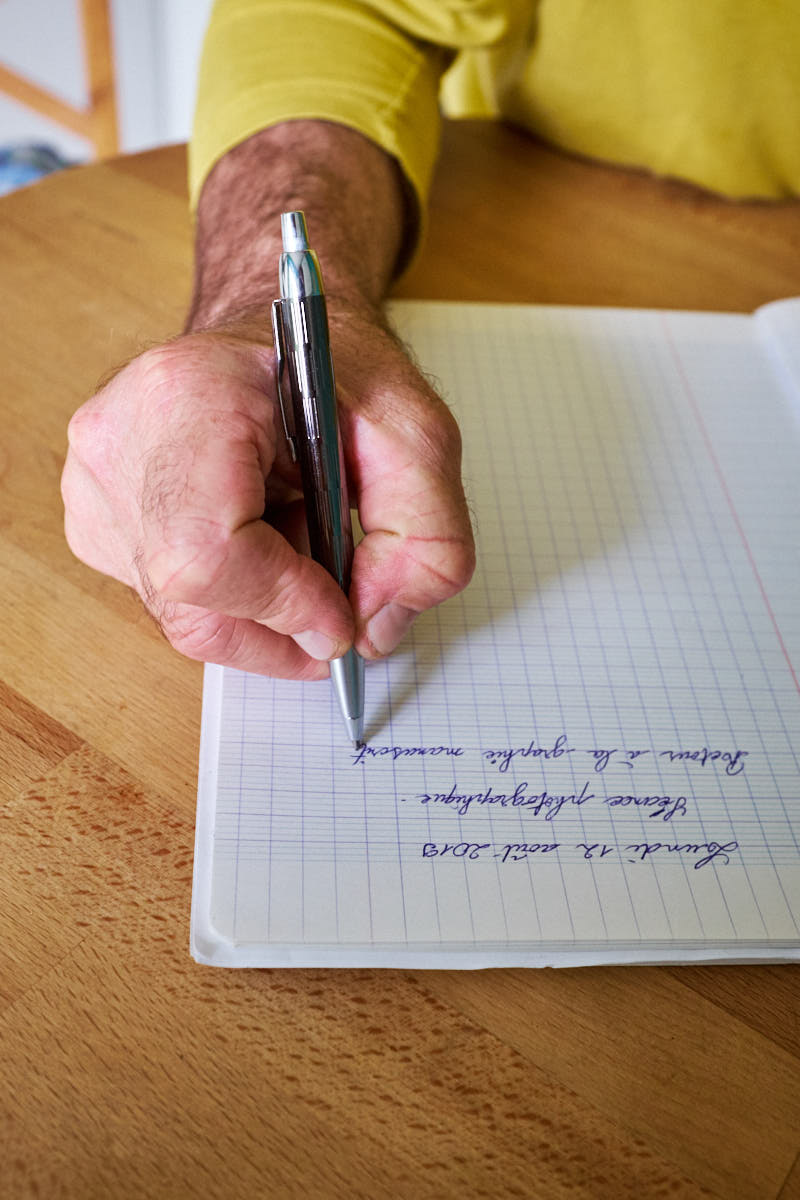 Lundi 12 août 2019
Séance photographique.
Retour à la graphie manuscrit